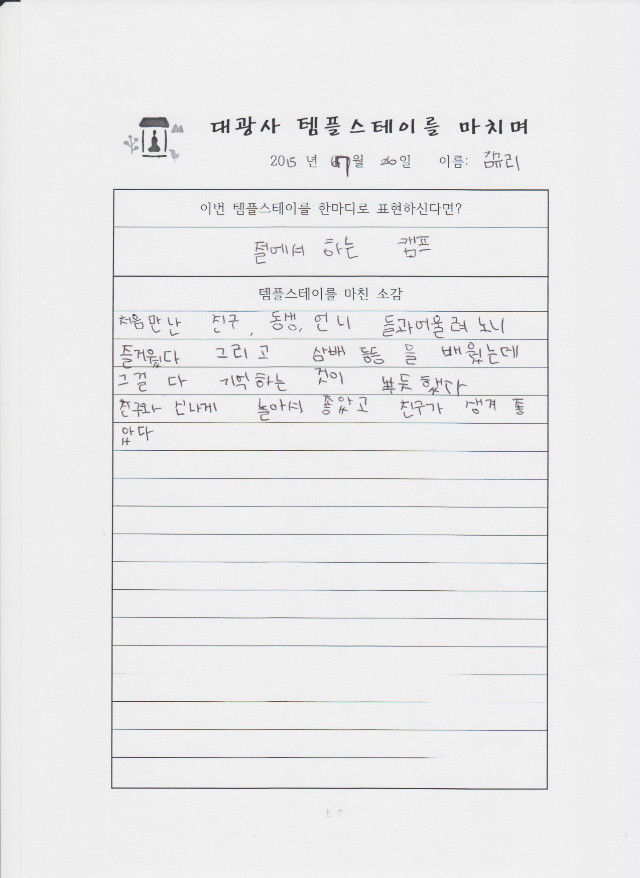 대광사 템플스테이를 마치며
2015 년 7월 20일 이름: 김규리
이번 템플스테이를 한마디로 표현하신다면?
절에서 하는 캠프
템플스테이를 마친 소감
처음만난 친구, 동생, 언니 들과어울려 노니
즐거웠다 그리고 삼배 등등 을 배웠는데
그걸 다 기억하는 것이 뿌듯했다
친구와 신나게 놀아서 좋았고 친구가 생겨 좋
았다